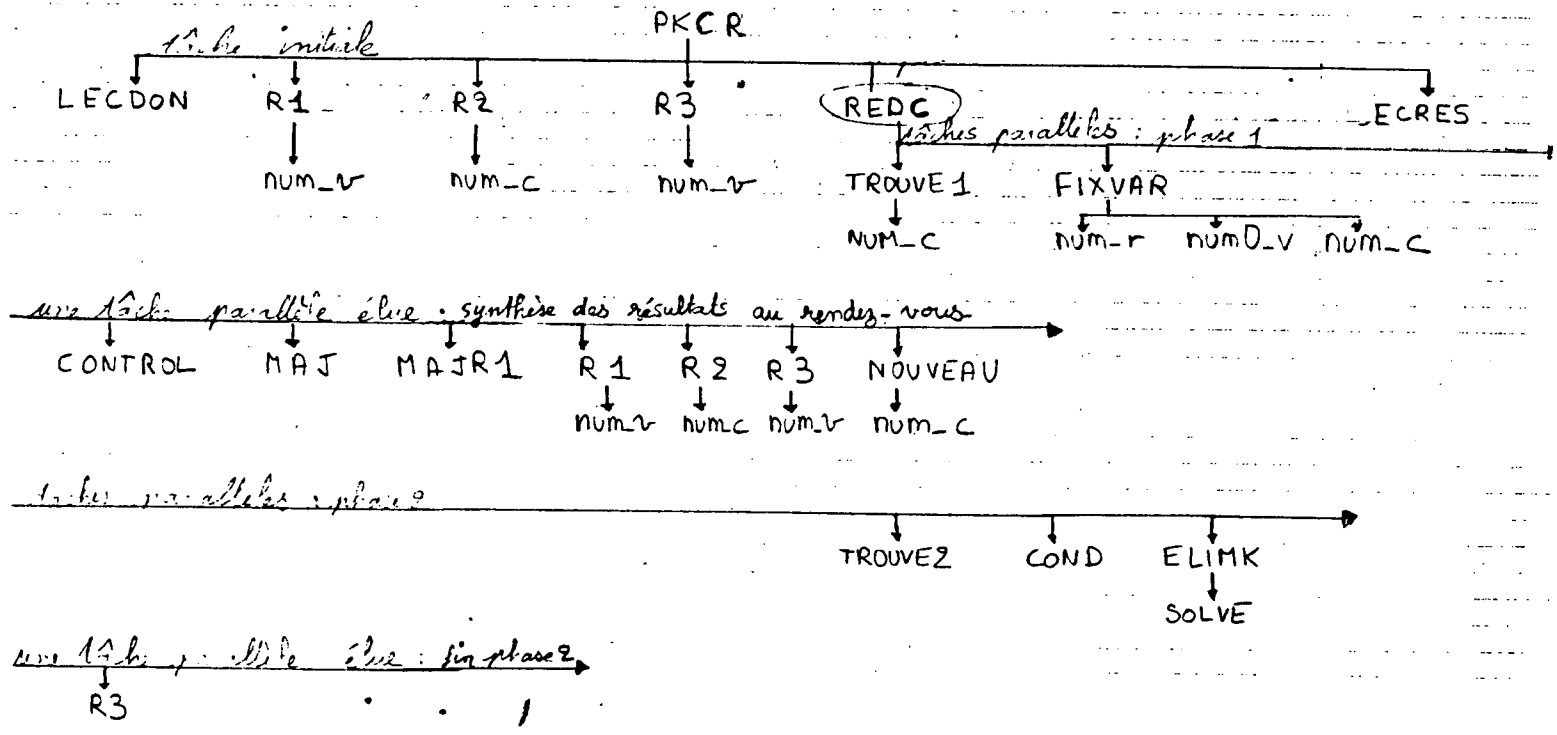 PKCR
tâche initiale
LECDON R1 R2 R3 REDC ECRES
tâches parallèles : phase 1
num_v num_c num_v TROUVE1 FIXVAR
NUM_C num_r num0_v num_c
une tâche parallèle élue : synthèse des résultats au rendez-vous
CONTROL MAJ MAJR1 R1 R2 R3 NOUVEAU
num_v num_c num_v num_c
tâches parallèles : phase 2
TROUVE2 COND ELIMK
SOLVE
une tâche parallèle élue : fin phase 2
R3